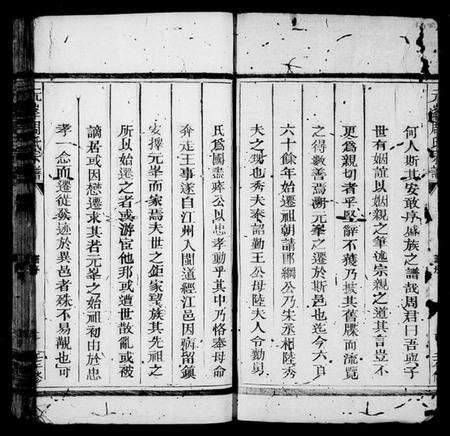 何人斯其安敢序盛族之譜哉周君曰吾與子
世有姻誼以姻親之筆述宗親之道其言豈不
更為親切者乎堅辭不獲乃披其舊牒而流覽
之得數善焉溯元峯之遷於斯邑也迄今六百
六十餘年始遷祖朝請郎綱公乃朱丞相陸秀
夫之甥也秀夫奉詔勤王公母陸夫人令勷舅
氏為國盡瘁公以忠孝動乎其中乃恪奉母命
奔走王事遂自江州入閩道經江邑因病留鎮
安擇元峯而家焉夫世之鉅家望族其先祖之
所以始遷之者或游宦他邦或遭世散亂或被
謫居或因戀遷求其者元峯之始祖初由於忠
孝一念而遷從發遂於異邑者殊不易覯也可
元峯周氏宗譜